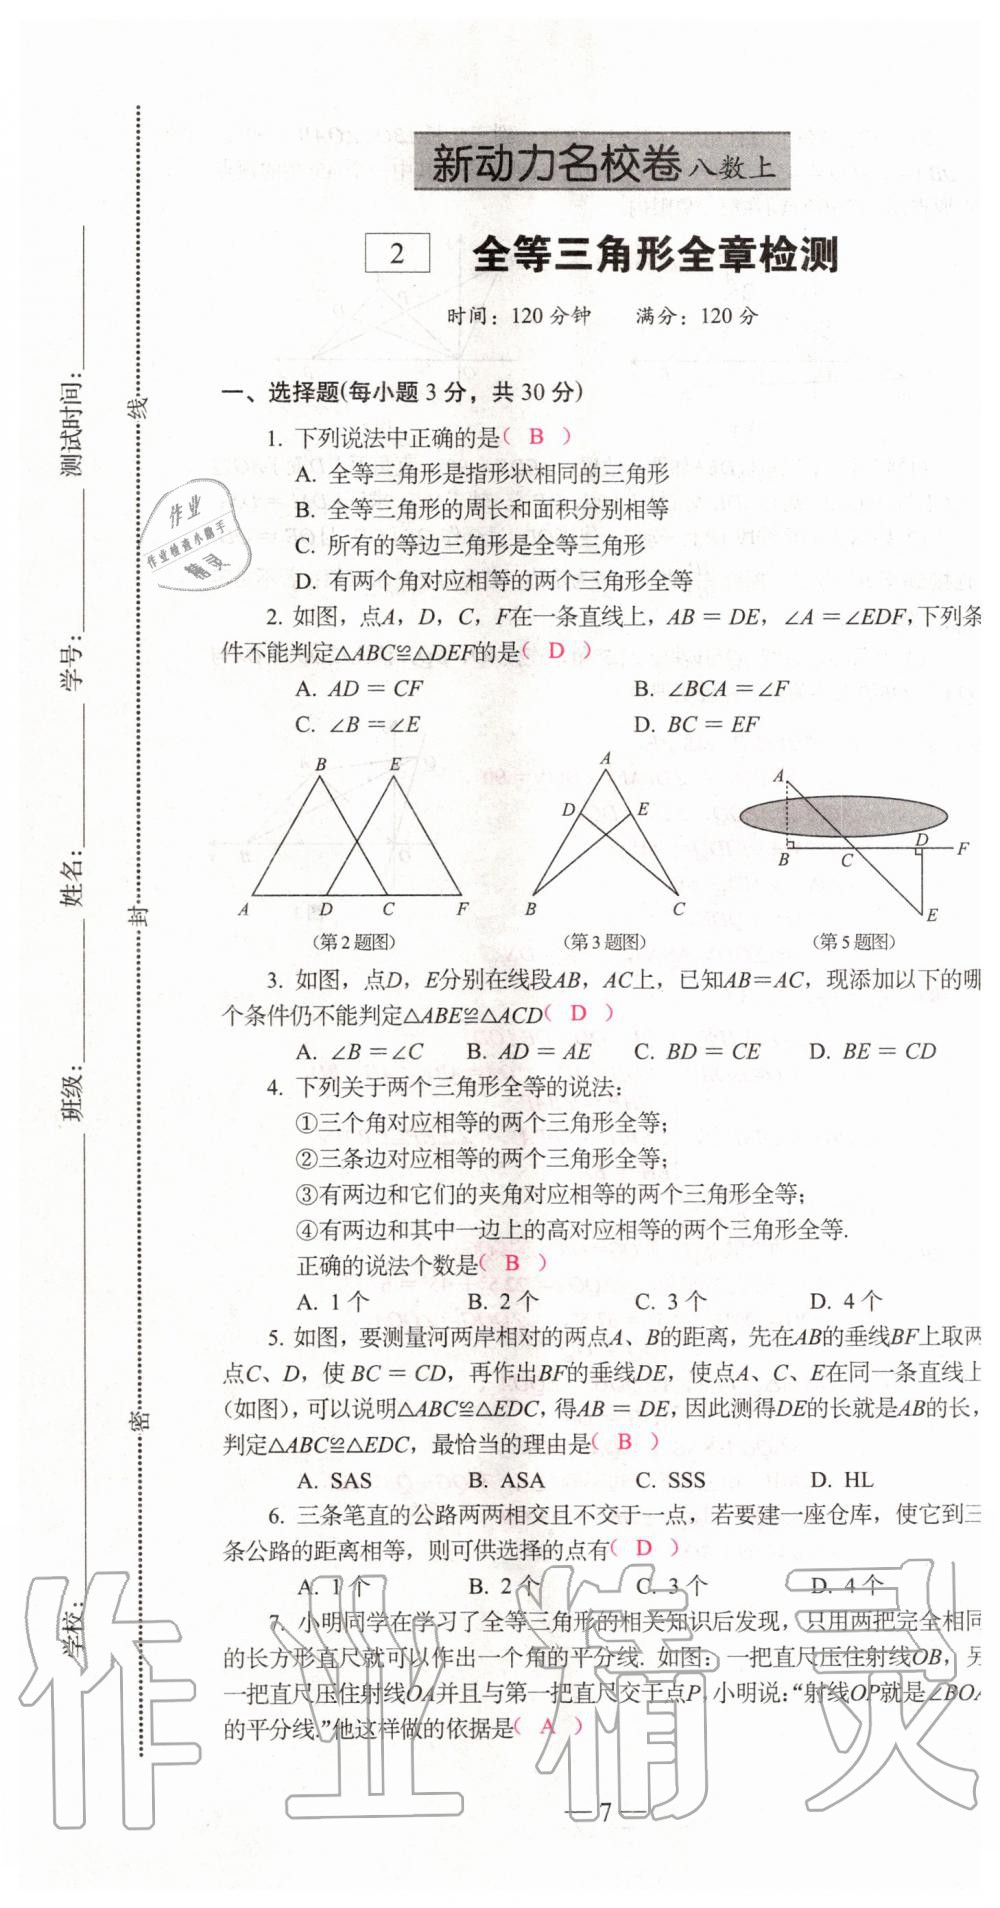 新动力名校卷 八数上
2 全等三角形全章检测
时间：120分钟 满分：120分
一、选择题(每小题3分，共30分)
1. 下列说法中正确的是( B )
A. 全等三角形是指形状相同的三角形
B. 全等三角形的周长和面积分别相等
C. 所有的等边三角形是全等三角形
D. 有两个角对应相等的两个三角形全等
2. 如图，点A，D，C，F在一条直线上，AB = DE，∠A =∠EDF，下列条
件不能判定△ABC≌△DEF的是( D )
A. AD = CF B. ∠BCA =∠F
C. ∠B =∠E D. BC = EF
B E A D C F
(第2题图)
A D E B C
(第3题图)
A B C D F E
(第5题图)
3. 如图，点D，E分别在线段AB，AC上，已知AB=AC，现添加以下的哪
个条件仍不能判定△ABE≌△ACD( D )
A. ∠B =∠C B. AD = AE C. BD = CE D. BE = CD
4. 下列关于两个三角形全等的说法：
①三个角对应相等的两个三角形全等；
②三条边对应相等的两个三角形全等；
③有两边和它们的夹角对应相等的两个三角形全等；
④有两边和其中一边上的高对应相等的两个三角形全等.
正确的说法个数是( B )
A. 1个 B. 2个 C. 3个 D. 4个
5. 如图，要测量河两岸相对的两点A、B的距离，先在AB的垂线BF上取两
点C、D，使 BC = CD，再作出BF的垂线DE，使点A、C、E在同一条直线上
(如图)，可以说明△ABC≌△EDC，得AB = DE，因此测得DE的长就是AB的长，
判定△ABC≌△EDC，最恰当的理由是( B )
A. SAS B. ASA C. SSS D. HL
6. 三条笔直的公路两两相交且不交于一点，若要建一座仓库，使它到三
条公路的距离相等，则可供选择的点有( D )
A. 1个 B. 2个 C. 3个 D. 4个
7. 小明同学在学习了全等三角形的相关知识后发现，只用两把完全相同
的长方形直尺就可以作出一个角的平分线. 如图：一把直尺压住射线OB，另
一把直尺压住射线OA并且与第一把直尺交于点P，小明说：“射线OP就是∠BOA
的平分线.”他这样做的依据是( A )
— 7 —
学校： 班级： 姓名： 学号： 测试时间：
密 封 线
作业
作业检查小助手
精灵
作业精灵